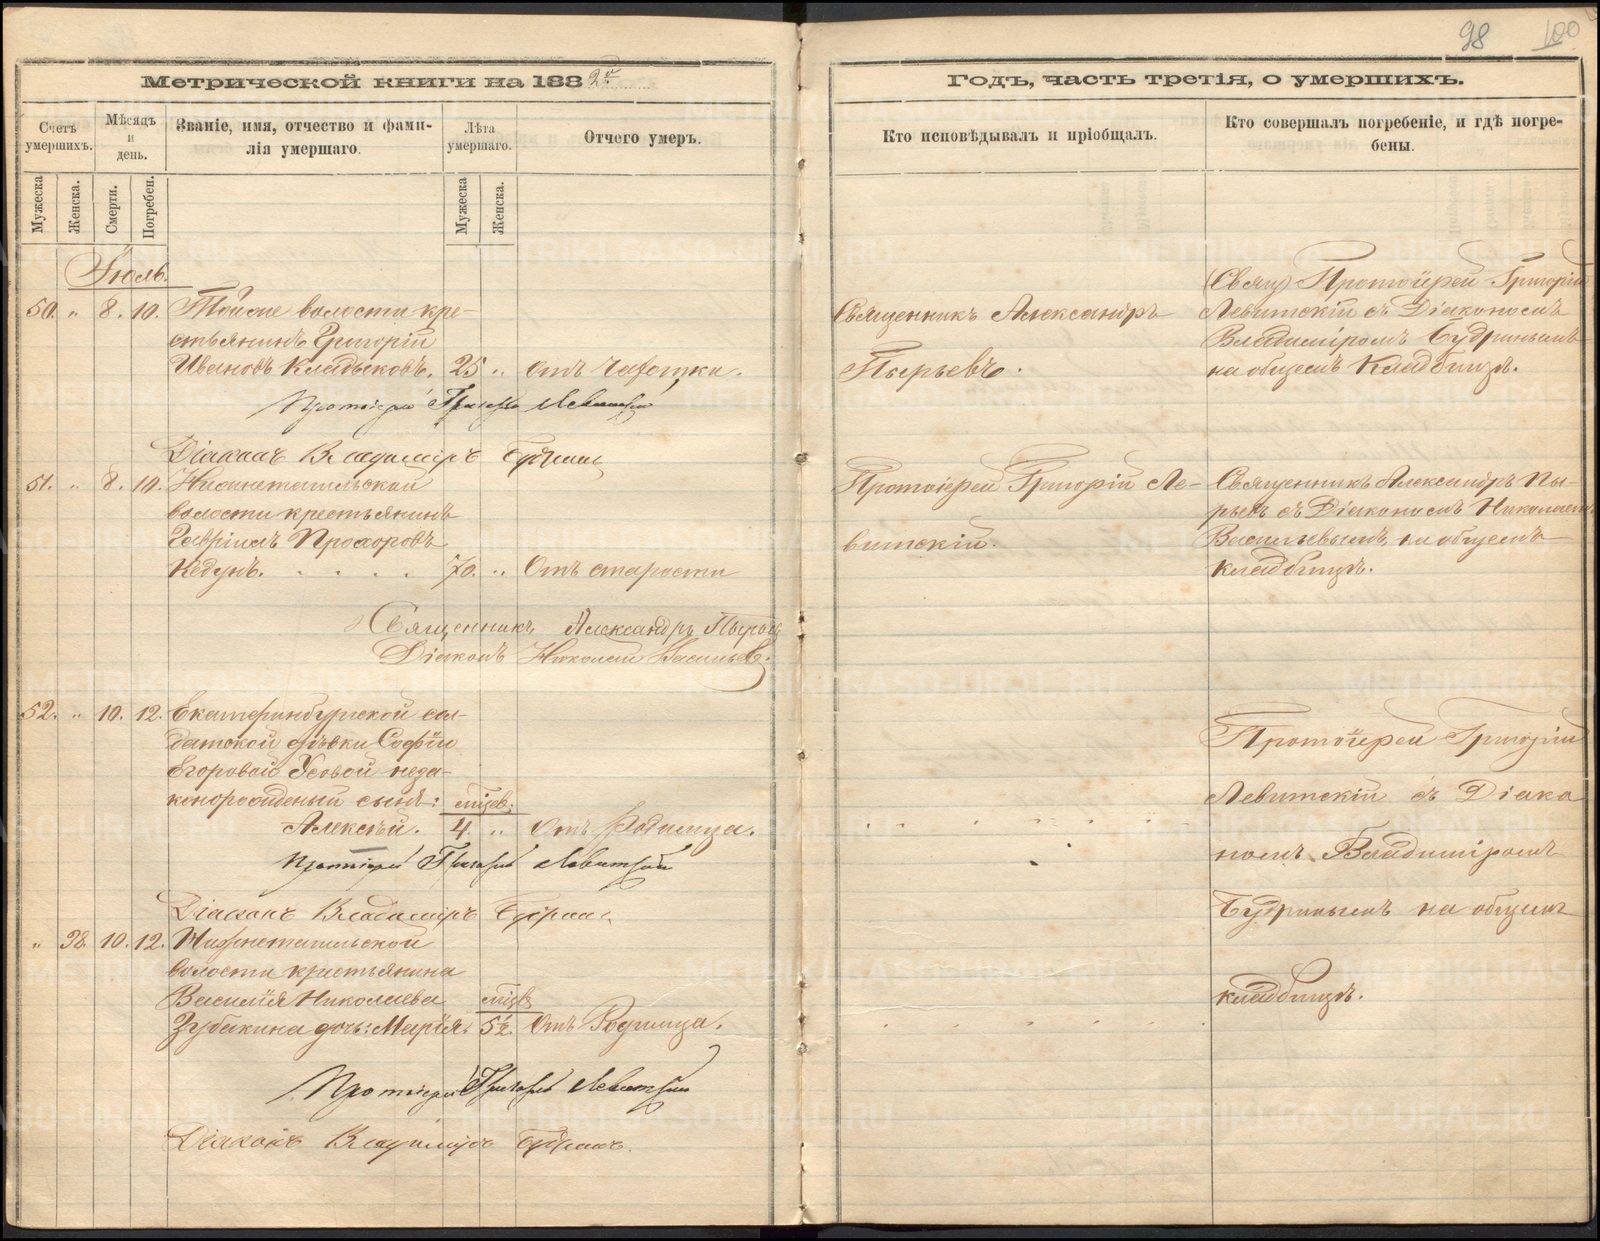 98 100
Метрической книги на 1882й
Годъ, часть третія, о умершихъ.
Счетъ умершихъ.
Мѣсяцъ и день.
Званіе, имя, отчество и фами-
лія умершаго.
Лѣта умершаго.
Отчего умеръ.
Кто исповѣдывалъ и пріобщалъ.
Кто совершалъ погребеніе, и гдѣ погре-
бены.
Мужеска
Женска.
Смерти.
Погребен.
Мужеска
Женска.
Іюль.
50. " 8. 10.
волости кре-
стьянинъ Григорій
Ивановъ Кладыковъ. 25 " Отъ чахотки.
Протоіерей Григорій Левитскій
Діаконъ Владиміръ Будринъ
Священникъ Александръ
Пырьевъ.
(Свящ) Протоіерей Григорій
Левитскій съ Діакономъ
Владиміромъ Будринымъ
на общемъ кладбищѣ.
51. " 8. 10. Нижнетагильской
волости крестьянинъ
Гавріилъ Прохоровъ
Кедунъ. 70. " Отъ старости
Священникъ Александръ Пырьевъ
Діаконъ Николай Васильевъ.
Протоіерей Григорій Ле-
витскій.
Священникъ Александръ Пы-
рьевъ съ Діакономъ Николаемъ
Васильевымъ, на общемъ
кладбищѣ.
52. " 10. 12. Екатеринбургской сол-
датской дѣвки Софіи
Егоровой Усовой неза-
коннорожденный сынъ:
Алексѣй. мѣсяц. 4. " Отъ родимца.
Протоіерей Григорій Левитскій
Діаконъ Владиміръ Будринъ
Протоіерей Григорій
Левитскій съ Діако
номъ Владиміромъ
Будринымъ на общемъ
кладбищѣ.
" 38. 10. 12. Нижнетагильской
волости крестьянина
Василія Николаева
Зубакина дочь: Марія. 5½. Отъ Родимца.
Протоіерей Григорій Левитскій
Діаконъ Владиміръ Будринъ.
METRIKI.GASO-URAL.RU